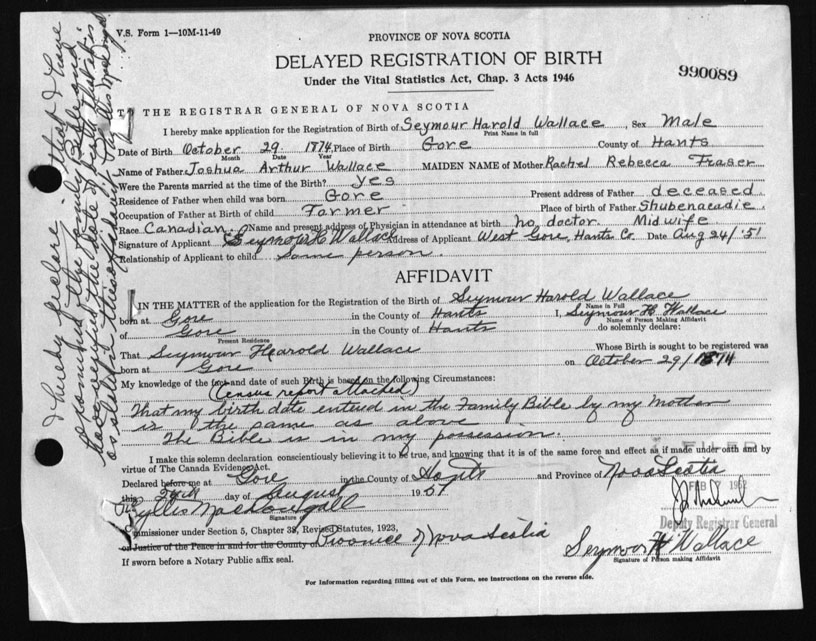 V.S. Form 1—10M-11-49
PROVINCE OF NOVA SCOTIA
DELAYED REGISTRATION OF BIRTH
Under the Vital Statistics Act, Chap. 3 Acts 1946
990089
TO THE REGISTRAR GENERAL OF NOVA SCOTIA
I hereby make application for the Registration of Birth of Seymour Harold Wallace, Sex Male
Print Name in full
Date of Birth October 29. 1874 Place of Birth Gore County of Hants.
Month Date Year
Name of Father Joshua Arthur Wallace MAIDEN NAME of Mother Rachel Rebecca Fraser
Were the Parents married at the time of the Birth? yes
Residence of Father when child was born Gore Present address of Father deceased
Occupation of Father at Birth of child Farmer Place of birth of Father Shubenacadie.
Race Canadian. Name and present address of Physician in attendance at birth no doctor. Midwife
Signature of Applicant Seymour H Wallace Address of Applicant West Gore, Hants Co. Date Aug 24/'51
Relationship of Applicant to child Same person.
AFFIDAVIT
IN THE MATTER of the application for the Registration of the Birth of Seymour Harold Wallace
Name in Full
born at Gore in the County of Hants I, Seymour H Wallace
Name of Person Making Affidavit
of Gore in the County of Hants do solemnly declare:
Present Residence
That Seymour Hearold Wallace Whose Birth is sought to be registered was
born at Gore on October 29/1874
My knowledge of the fact and date of such Birth is based on the following Circumstances:
(census report attached)
That my birth date entered in the Family Bible by my Mother
is the same as above
The Bible is in my possession.
I make this solemn declaration conscientiously believing it to be true, and knowing that it is of the same force and effect as if made under oath and by
virtue of The Canada Evidence Act.
FILED
Declared before me at Gore in the County of Hants and Province of Nova Scotia
this 24th day of August 1951
FEB 1952
Phyllis MacDougall
Signature
Deputy Registrar General
Commissioner under Section 5, Chapter 38, Revised Statutes, 1923,
or Justice of the Peace in and for the County of Province of Nova Scotia
Seymour H Wallace
Signature of Person making Affidavit
If sworn before a Notary Public affix seal.
For Information regarding filling out of this Form, see Instructions on the reverse side.
I hereby declare that I have
examined the family Bible and
have verified the date of birth that is